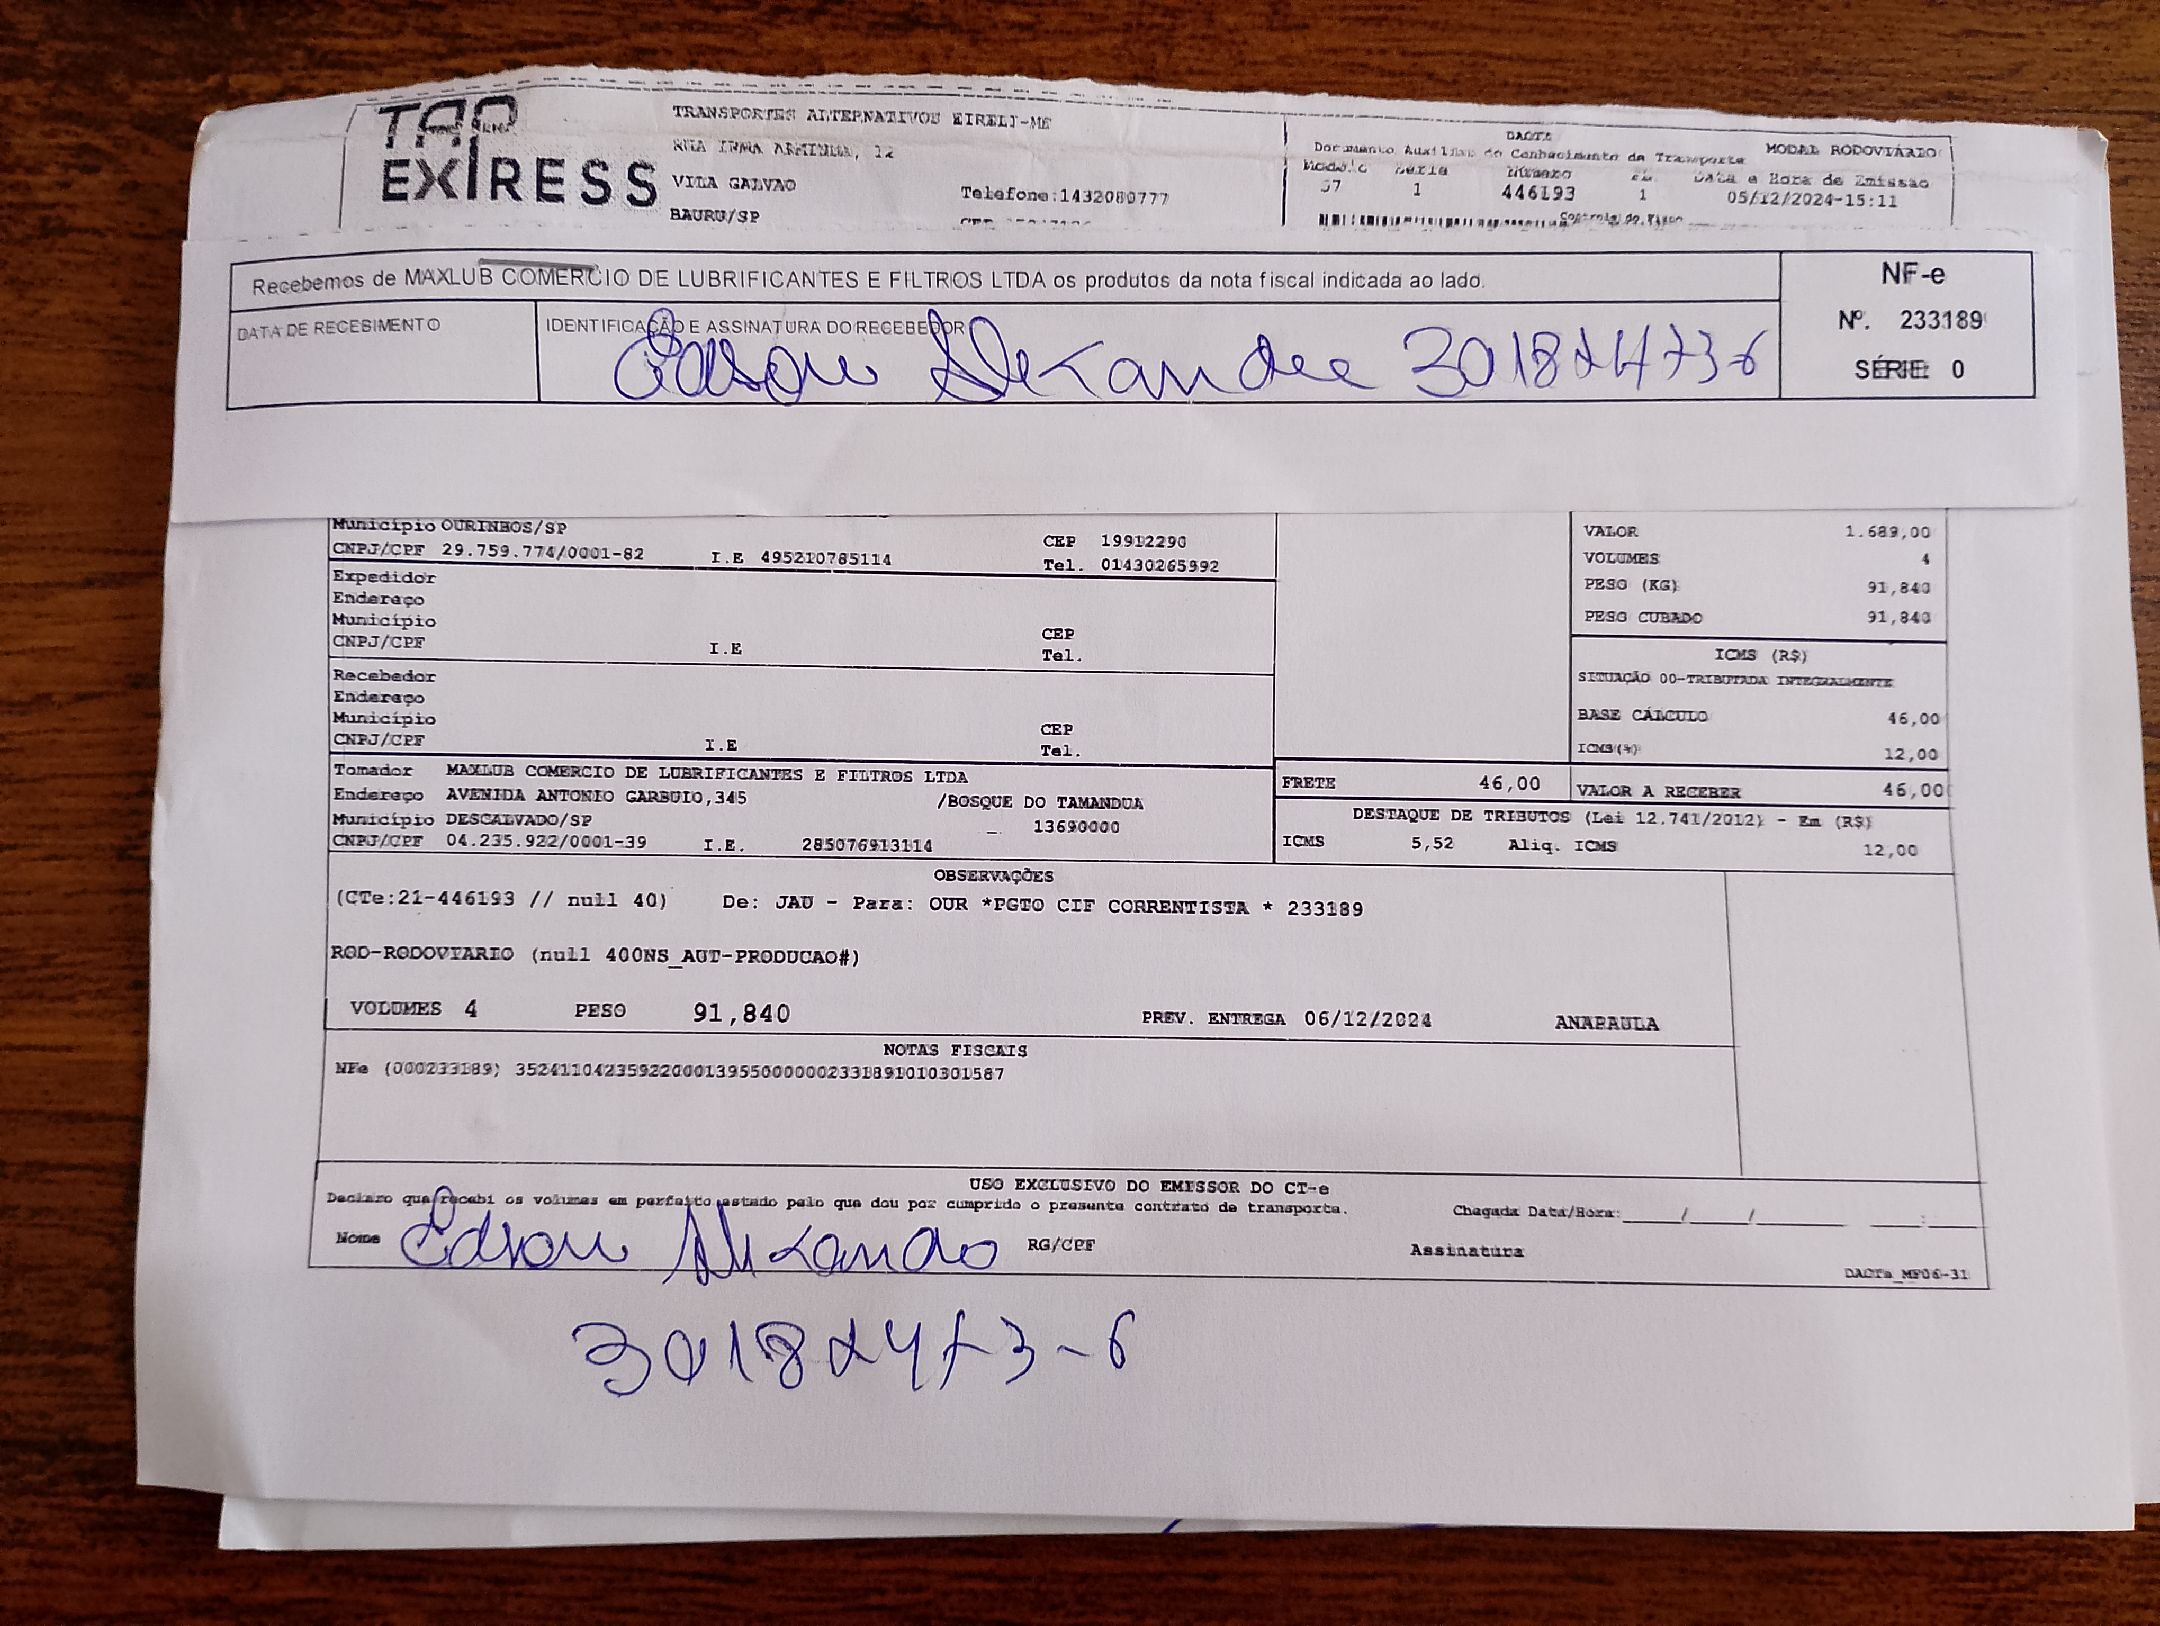 TAP
EXPRESS
TRANSPORTES ALTERNATIVOS EIRELI-ME
RUA IRMA ARMINDA, 12
VILA GALVAO
BAURU/SP
Telefone:1432080777
DACTE
Documento Auxiliar do Conhecimento de Transporte
MODAL RODOVIÁRIO
Modelo Serie Número Data e Hora de Emissão
57 1 446193 1 05/12/2024-15:11
Controle do Fisco
Recebemos de MAXLUB COMERCIO DE LUBRIFICANTES E FILTROS LTDA os produtos da nota fiscal indicada ao lado.
DATA DE RECEBIMENTO
IDENTIFICAÇÃO E ASSINATURA DO RECEBEDOR
Edson Alexandre 30182473-6
NF-e
Nº. 233189
SÉRIE: 0
Município OURINHOS/SP
CNPJ/CPF 29.759.774/0001-82 I.E 495210785114
CEP 19912290
Tel. 01430265992
VALOR 1.689,00
VOLUMES 4
PESO (KG) 91,840
PESO CUBADO 91,840
Expedidor
Endereço
Município
CNPJ/CPF I.E
CEP
Tel.
Recebedor
Endereço
Município
CNPJ/CPF I.E
CEP
Tel.
ICMS (R$)
SITUAÇÃO 00-TRIBUTADA INTEGRALMENTE
BASE CÁLCULO 46,00
ICMS(%) 12,00
Tomador MAXLUB COMERCIO DE LUBRIFICANTES E FILTROS LTDA
Endereço AVENIDA ANTONIO GARBUIO,345 /BOSQUE DO TAMANDUA
Município DESCALVADO/SP 13690000
CNPJ/CPF 04.235.922/0001-39 I.E. 285076913114
FRETE 46,00
VALOR A RECEBER 46,00
DESTAQUE DE TRIBUTOS (Lei 12.741/2012) - Em (R$)
ICMS 5,52 Aliq. ICMS 12,00
OBSERVAÇÕES
(CTe:21-446193 // null 40) De: JAU - Para: OUR *PGTO CIF CORRENTISTA * 233189
ROD-RODOVIARIO (null 400NS_AUT-PRODUCAO#)
VOLUMES 4 PESO 91,840 PREV. ENTREGA 06/12/2024 ANAPAULA
NOTAS FISCAIS
NFe (000233189) 35241104235922000139550000002331891010301587
USO EXCLUSIVO DO EMISSOR DO CT-e
Declaro que recebi os volumes em perfeito estado pelo que dou por cumprido o presente contrato de transporte.
Chegada Data/Hora:____/____/______ ___:____
Nome Edson Alexandre RG/CPF Assinatura
DACTe_MF06-31
30182473-6